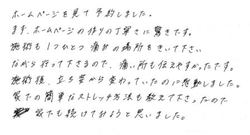 ホームページを見て予約しました。
まず、ホームページの作りの丁寧さに驚きです。
施術も1つひとつ痛みの場所をきいて下さい
ながら行って下さるので、痛い所も伝えやすかったです。
施術後、立ち姿から変わっていたのに感動しました。
家での簡単なストレッチ方法も教えて下さったので
家でも続けて行こうと思いました。